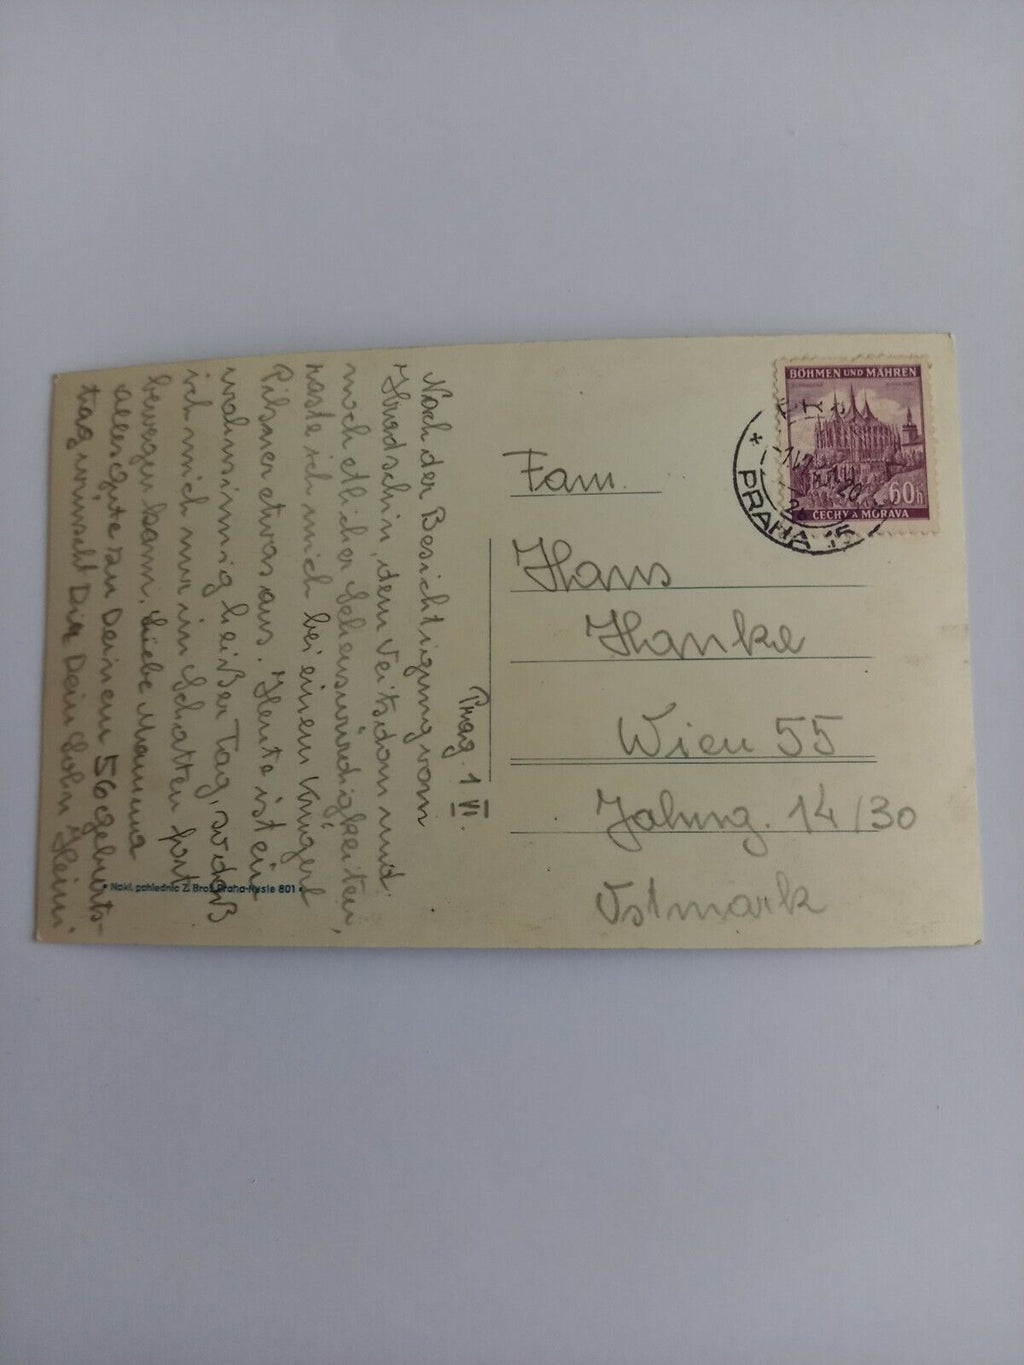 Prag. 1 VII.
Nach der Besichtigung vom
Hradschin, dem Veitsdom und
noch etlicher Sehenswürdigkeiten,
raste ich mich bei einem Krügerl
Pilsner etwas aus. Heute ist ein
wahnsinnig heißer Tag, sodaß
ich mich nur im Schatten fort
bewegen kann. Liebe Mamma
alles gute zu Deinem 56 geburts-
tag wünscht Dir Dein Sohn Heini.
Nakl. pohlednic Z. Brož Praha-Nusle 801
BÖHMEN UND MÄHREN
60h
ČECHY A MORAVA
PRAHA 15
Fam.
Hans
Hanke
Wien 55
14/30
Ostmark